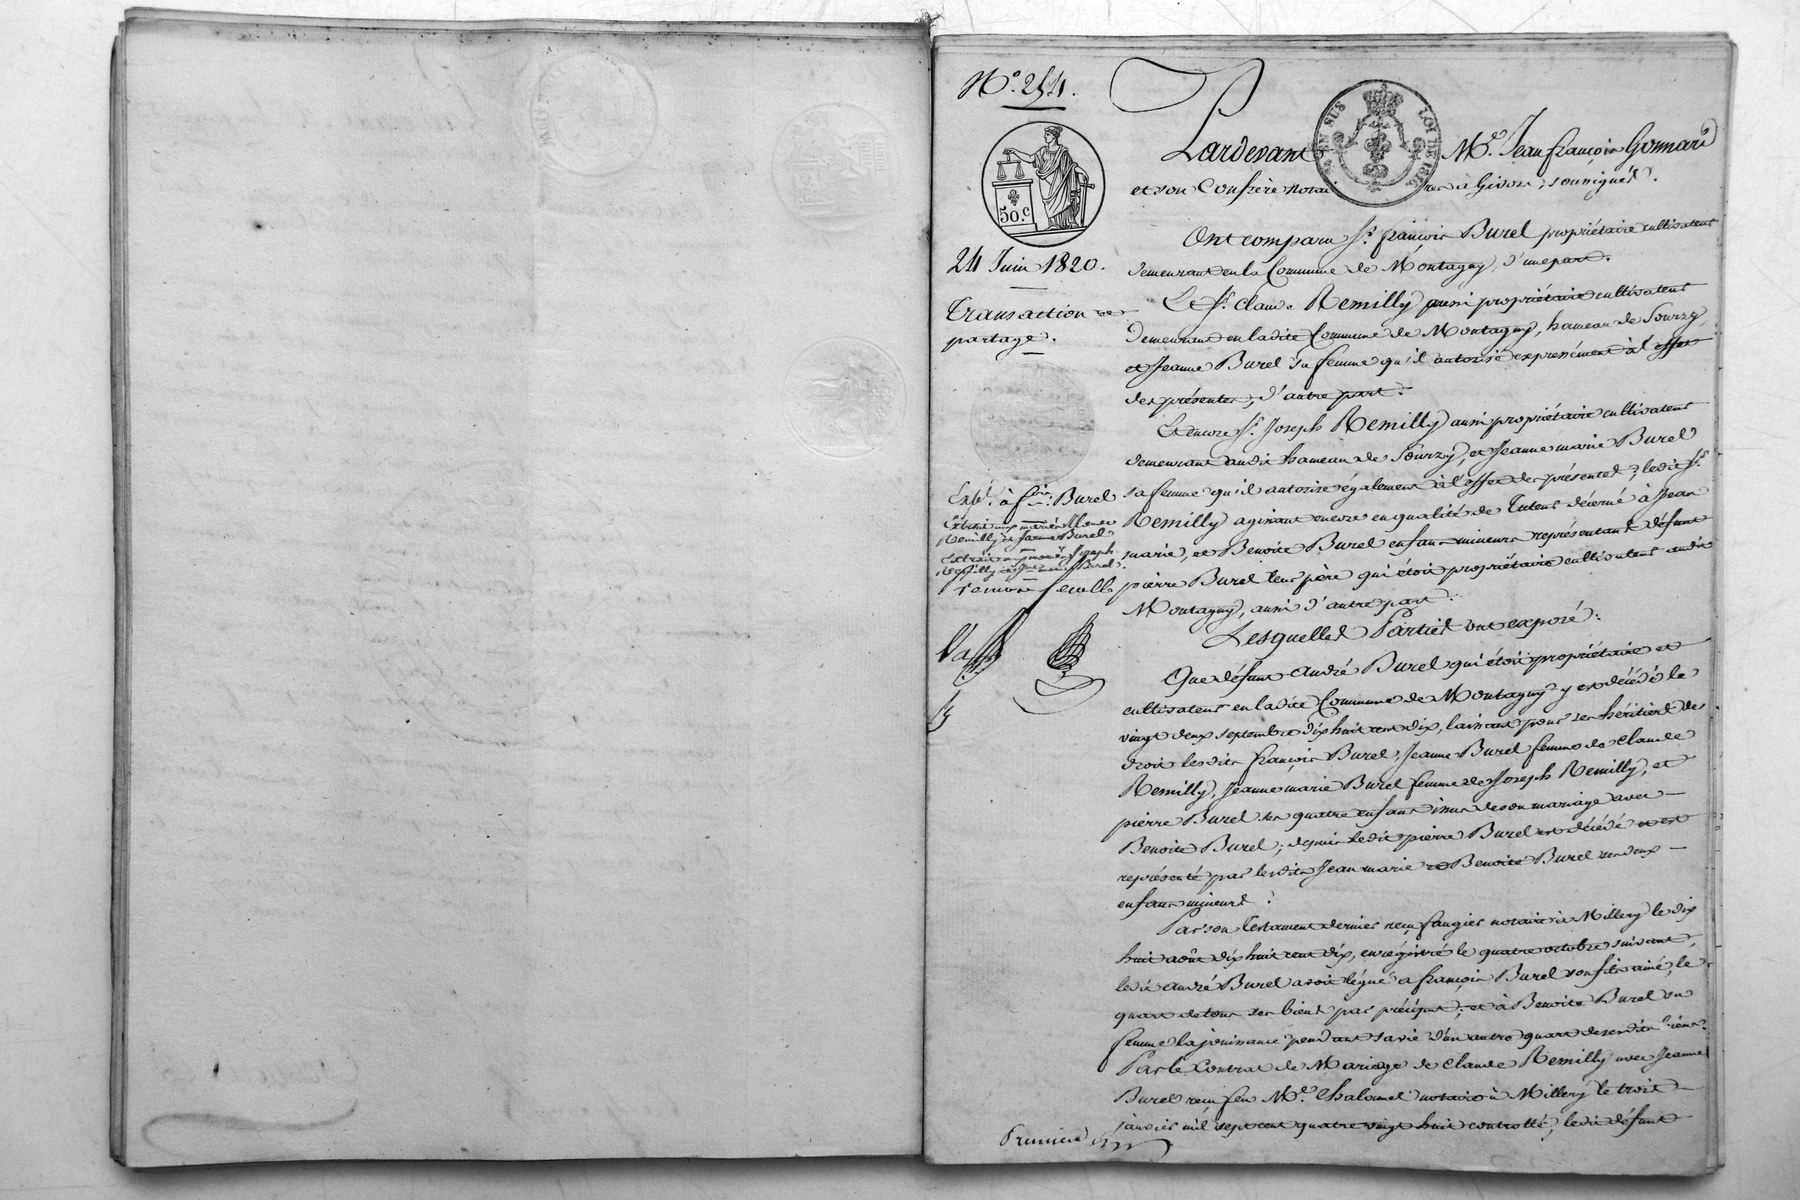 N.° 254.
Pardevant Me. Jean françois Gonnard
et son Confrère notaires à Givors, soussignés.
50.c
EN SUS
LOI DE 1816
24 Juin 1820.
Transaction et
partage.
Ont comparu Sr. françois Burel propriétaire cultivateur
demeurant en la Commune de Montagny, d'une part.
Le Sr. Claude Remilly aussi propriétaire cultivateur
demeurant en ladite Commune de Montagny, hameau de Sourzy,
et Jeanne Burel sa femme qu'il autorise expressément à l'effet
des présentes, d'autre part.
Et encore Sr. Joseph Remilly aussi propriétaire cultivateur
demeurant audit hameau de Sourzy, et Jeanne marie Burel
sa femme qu'il autorise également à l'effet des présentes; ledit Sr.
Remilly agissant encore en qualité de Tuteur décerné à Jean
marie, et Benoite Burel enfans mineurs représentant défunt
pierre Burel leur père qui étoit propriétaire cultivateur audit
Montagny, aussi d'autre part.
Expé. à fois. Burel
Extrait aux mariés Claude
Remilly et Jeanne Burel
Extrait aux mariés Joseph
Remilly et Jne marie Burel.
Lesquelles Parties ont exposé:
Que défunt André Burel qui étoit propriétaire et
cultivateur en ladite Commune de Montagny y est décédé le
vingt deux septembre dix huit cent dix, laissant pour ses héritiers de
droit lesdits françois Burel, Jeanne Burel femme de Claude
Remilly, Jeanne marie Burel femme de Joseph Remilly, et
pierre Burel ses quatre enfans issus de son mariage avec
Benoite Burel; depuis ledit pierre Burel est décédé et est
représenté par lesdits Jean marie et Benoite Burel ses deux
enfans mineurs.
Par son Testament dernier reçu faugier notaire à Millery le dix
huit août dix huit cent dix, enregistré le quatre octobre suivant,
ledit André Burel avoit légué a françois Burel son fils ainé, le
quart de tous ses biens par préciput; et à Benoite Burel sa
femme la jouissance pendant sa vie d'un autre quart desesdits biens.
Par le Contrat de Mariage de Claude Remilly avec Jeanne
Burel reçu feu Me. Chalomel notaire à Millery le trois
janvier mil sept cent quatre vingt huit controllé, ledit défunt